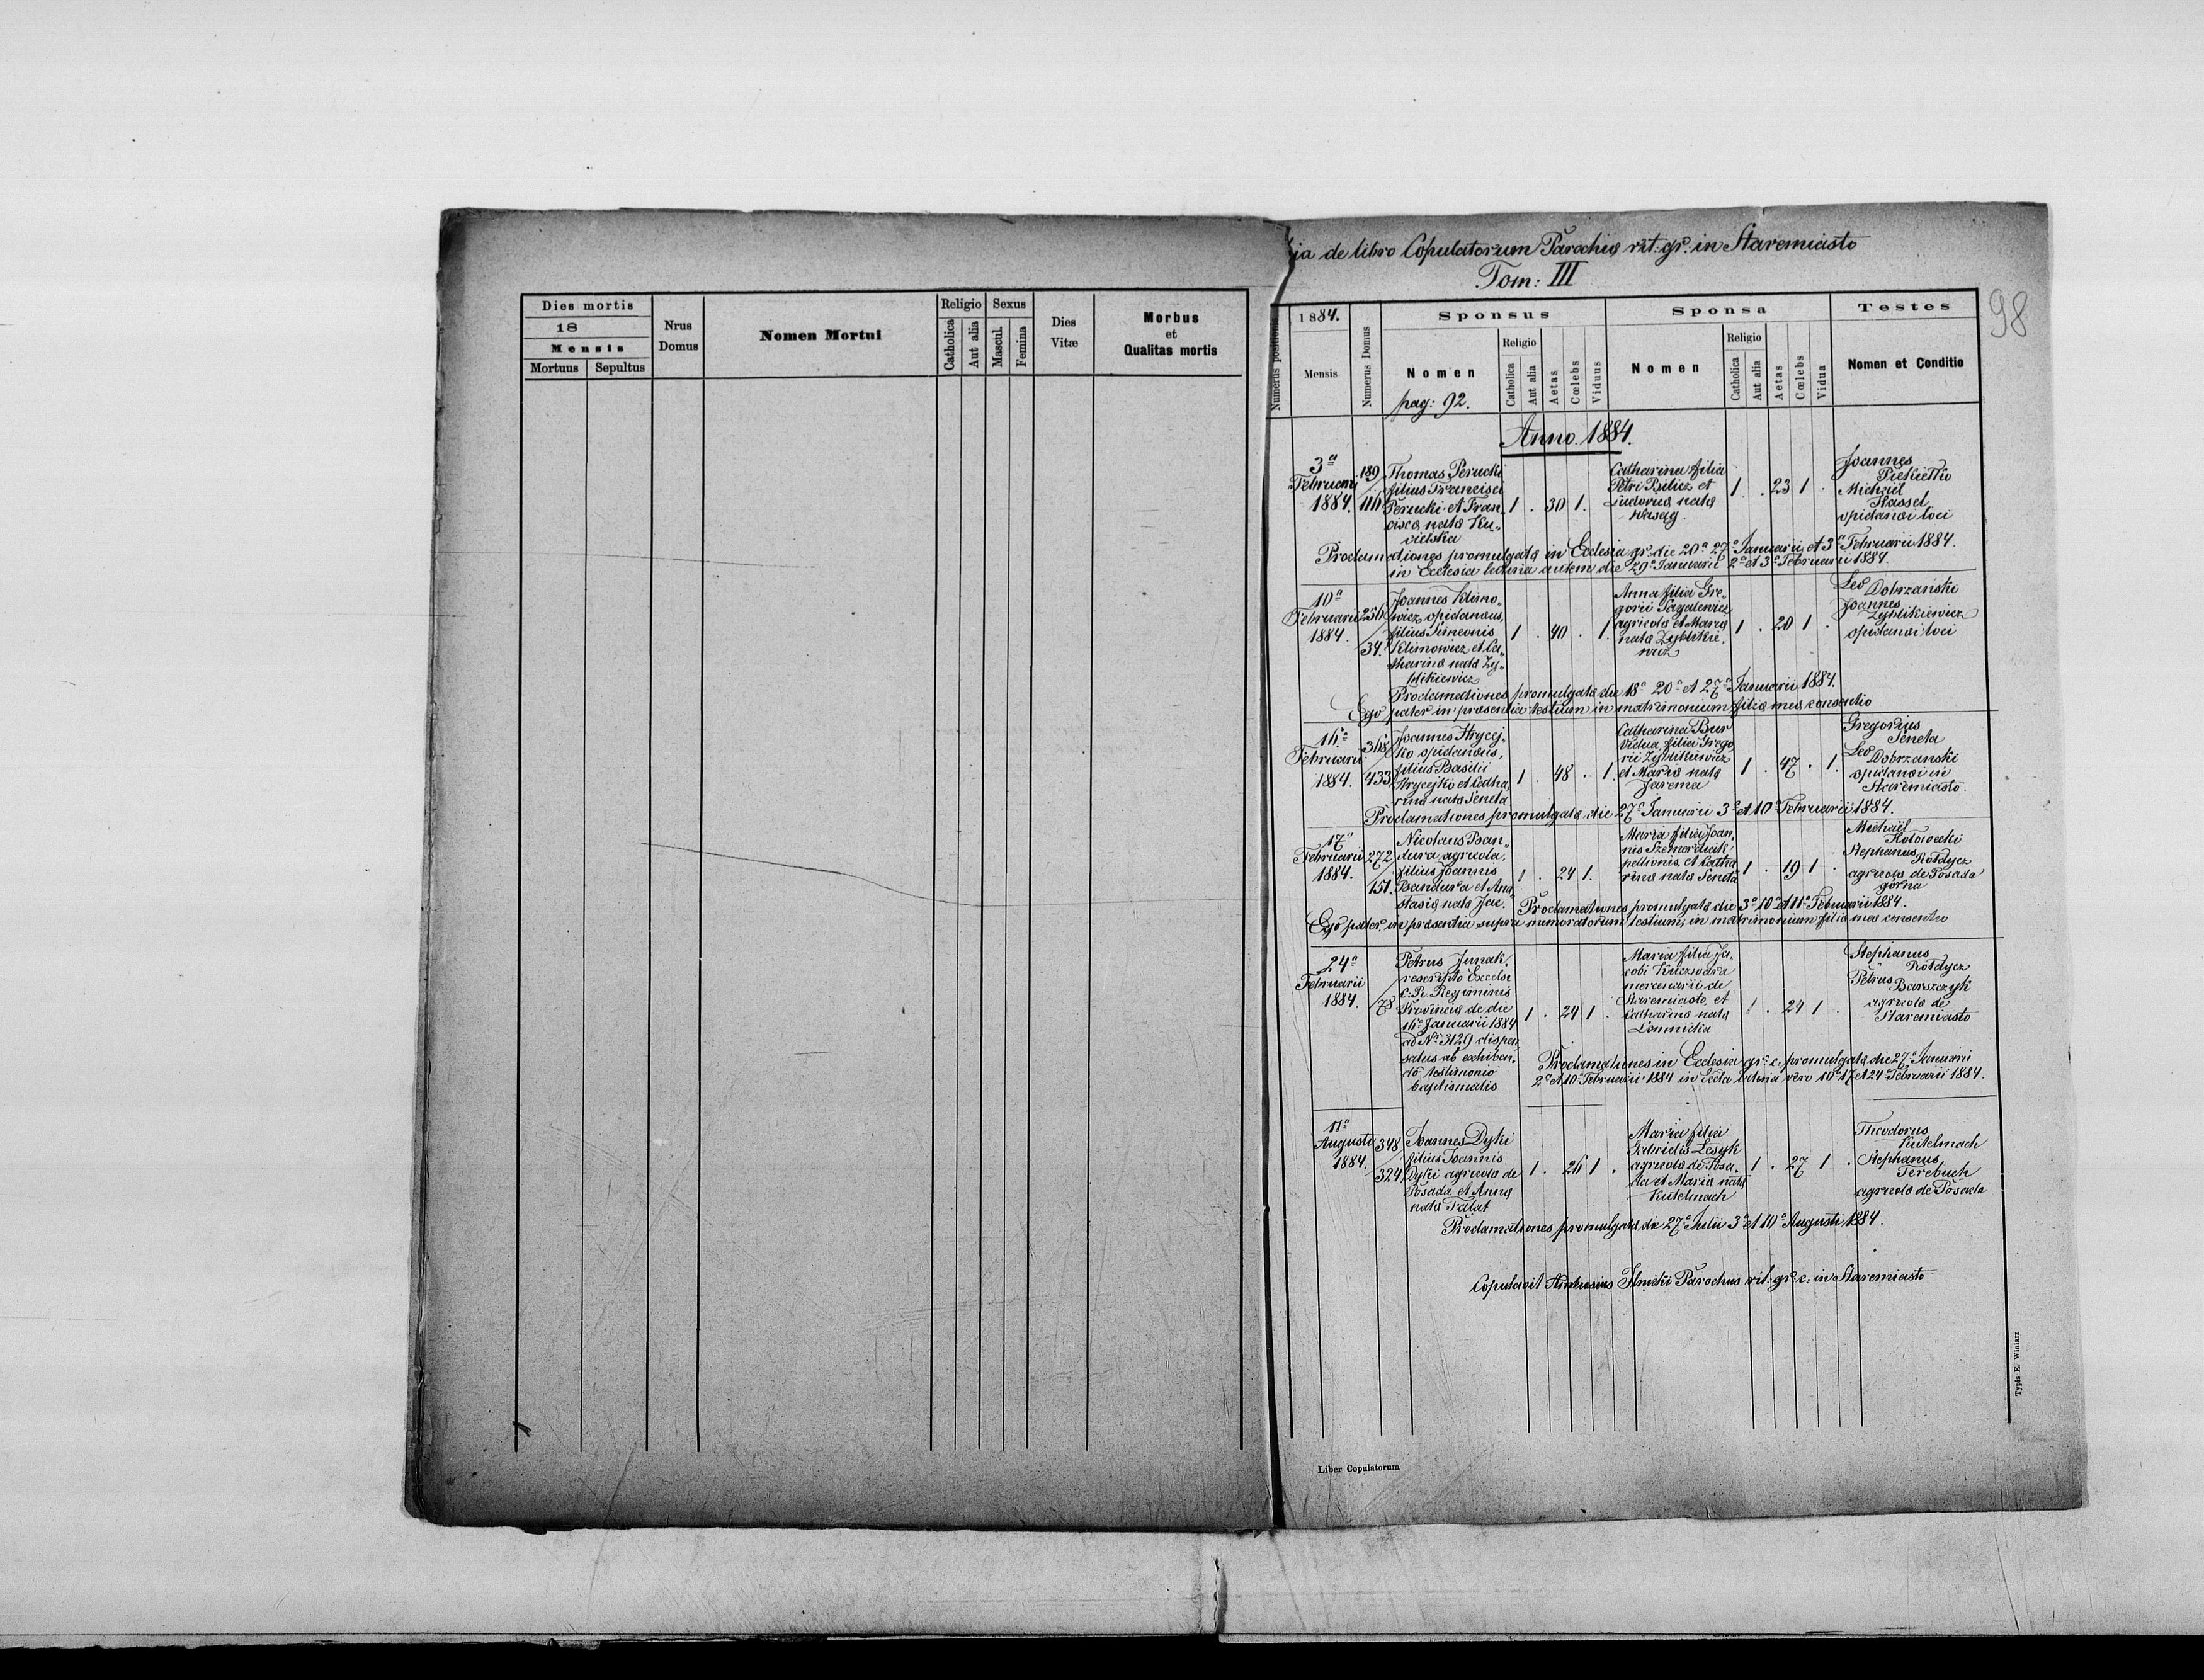 Dies mortis
18
Mensis
Mortuus Sepultus
Nrus
Domus
Nomen Mortui
Religio
Catholica
Aut alia
Sexus
Mascul.
Femina
Dies
Vitæ
Morbus
et
Qualitas mortis
de libro Copulatorum Parochiæ rit: gr: in Staremiasto
Tom: III
98
Numerus positionis
1884.
Mensis
Numerus Domus
Sponsus
Nomen
pag: 92.
Religio
Catholica
Aut alia
Aetas
Cœlebs
Viduus
Sponsa
Nomen
Religio
Catholica
Aut alia
Aetas
Cœlebs
Vidua
Testes
Nomen et Conditio
Anno 1884.
3a
Februarii
1884.
189
Thomas Perucki
filius Francisci
Perucki et Fran„
cisca nata
1 . 30 1.
Catharina filia
Petri et
nata
1 . 23 1 .
Joannes
Michael
Hassel
opidanei loci
Proclamationes promulgatæ in Ecclesia gr: die 20a 27a Januarii et 3a Februarii 1884.
in Ecclesia latina autem die 29a Januarii 2a et 3a Februarii 1884.
10a
Februarii
1884.
256
34.
Joannes Klimo„
wicz opidanus,
filius Simeonis
Klimowicz et Ca„
tharina nata Zy„
blikiewicz
1 . 40 . 1.
Anna filia Gre„
gorii Sagalewicz
agricola et Maria
nata Zyblikie„
wicz
1 . 20 1 .
Leo
Dobrzański
Joannes
Zyblikiewicz
opidanei loci
Proclamationes promulgatæ die 18a 20a et 27a Januarii 1884.
Ego pater in præsentia testium in matrimonium filiæ meæ consentio
16a
Februarii
1884.
368
433
Joannes Hrycej„
ko opidanus,
filius Basilii
Hrycejko et Catha„
rina nata Seneta
1 . 48 . 1.
Catharina Bur
vidua, filia Grego
rii Zyblikiewicz
et Maria nata
Jarema
1 . 47 . 1.
Gregorius
Seneta
Leo
Dobrzanski
opidanei in
Staremiasto.
Proclamationes promulgatæ die 27a Januarii 3a et 10a Februarii 1884.
17a
Februarii
1884.
272
151.
Nicolaus Ban„
dura, agricola,
filius Joannis
Bandura et Ana
stasia nata Jac.
1 . 24 1.
Maria filia Joan„
nis
pellionis, et Catha
rina nata Seneta
1 . 19 1 .
Michael
Stephanus
Rotdycz
agricola de Posada
górna
Proclamationes promulgatæ die 3a 10a et 11a Februarii 1884.
Ego pater in præsentia supra memoratorum testium, in matrimonium filiæ meæ consentio
24a
Februarii
1884.
78
Petrus Junak,
rescripto Excelsi
C. R. Regiminis
Provinciæ de die
16a Januarii 1884
ad No 3129 dispen„
satus ab exhiben„
do testimonio
baptismatis
1 . 24 1 .
Maria filia Ja„
cobi Kuczwara
mercenarii de
Staremiasto, et
Catharina nata
1 . 24 1 .
Stephanus
Rotdycz
Petrus
Barszczyk
agricola de
Staremiasto
Proclamationes in Ecclesia gr: c: promulgatæ die 27a Januarii
2a et 10a Februarii 1884 in Eccla latina vero 10a 17a et 24a Februarii 1884.
11a
Augusti
1884.
348
324
Joannes Dyki
filius Joannis
Dyki agricola de
Posada et Anna
nata Talat
1 . 26 1 .
Maria filia
Gabrielis Lesyk
agricola de Posa„
da et Maria nata
Kutelmach
1 . 27 1 .
Theodorus
Kutelmach
Stephanus
Terebuch
agricola de Posada
Proclamationes promulgatæ die 27a Julii 3a et 10a Augusti 1884.
Copulavit Ilnicki Parochus rit: gr: c: in Staremiasto
Liber Copulatorum
Typis E. Winiarz